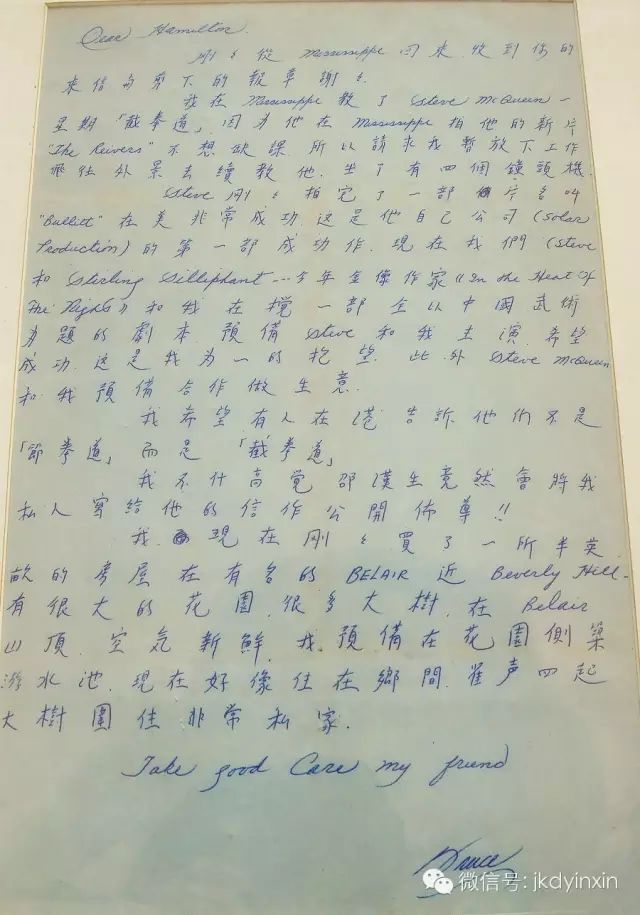 Dear Hamilton.
刚々從 Mississippe 回來.收到你的
來信与剪下的報章謝々.
我在 Mississippe 教了 Steve McQueen 一
星期「截拳道」因为他在 Mississippe 拍他的新片
"The Reivers" 不想缺課.所以請求我暫放下工作
飛往外景去續教他.坐了有四個鐘頭機.
Steve 刚々拍完了一部片名叫
"Bullitt" 在美非常成功这是他自己公司 (Solar
Production) 的第一部成功作.現在我們 (Steve
和 Stirling Silliphant---今年金像作家《In the Heat Of
The Night》) 和我在攪一部全以中國武術
为題的劇本.預備 Steve 和我主演.希望
成功.这是我为一的抱望.此外 Steve McQueen
和我預備合作做生意.
我希望有人在港告訴他们不是
「節拳道」而是「截拳道」
我不什高觉邵漢生竟然會將我
私人寫給他的信作公開佈尊!!
我現在刚々買了一所半英
畝的房屋在有名的 BELAIR 近 Beverly Hill-
有很大的花園.很多大樹.在 Belair
山頂.空気新鮮.我預備在花園側築
游水池.現在好像住在鄉間.雀声四起
大樹圍住非常私家.
Take good Care my friend
Bruce
微信号: jkdyinxin